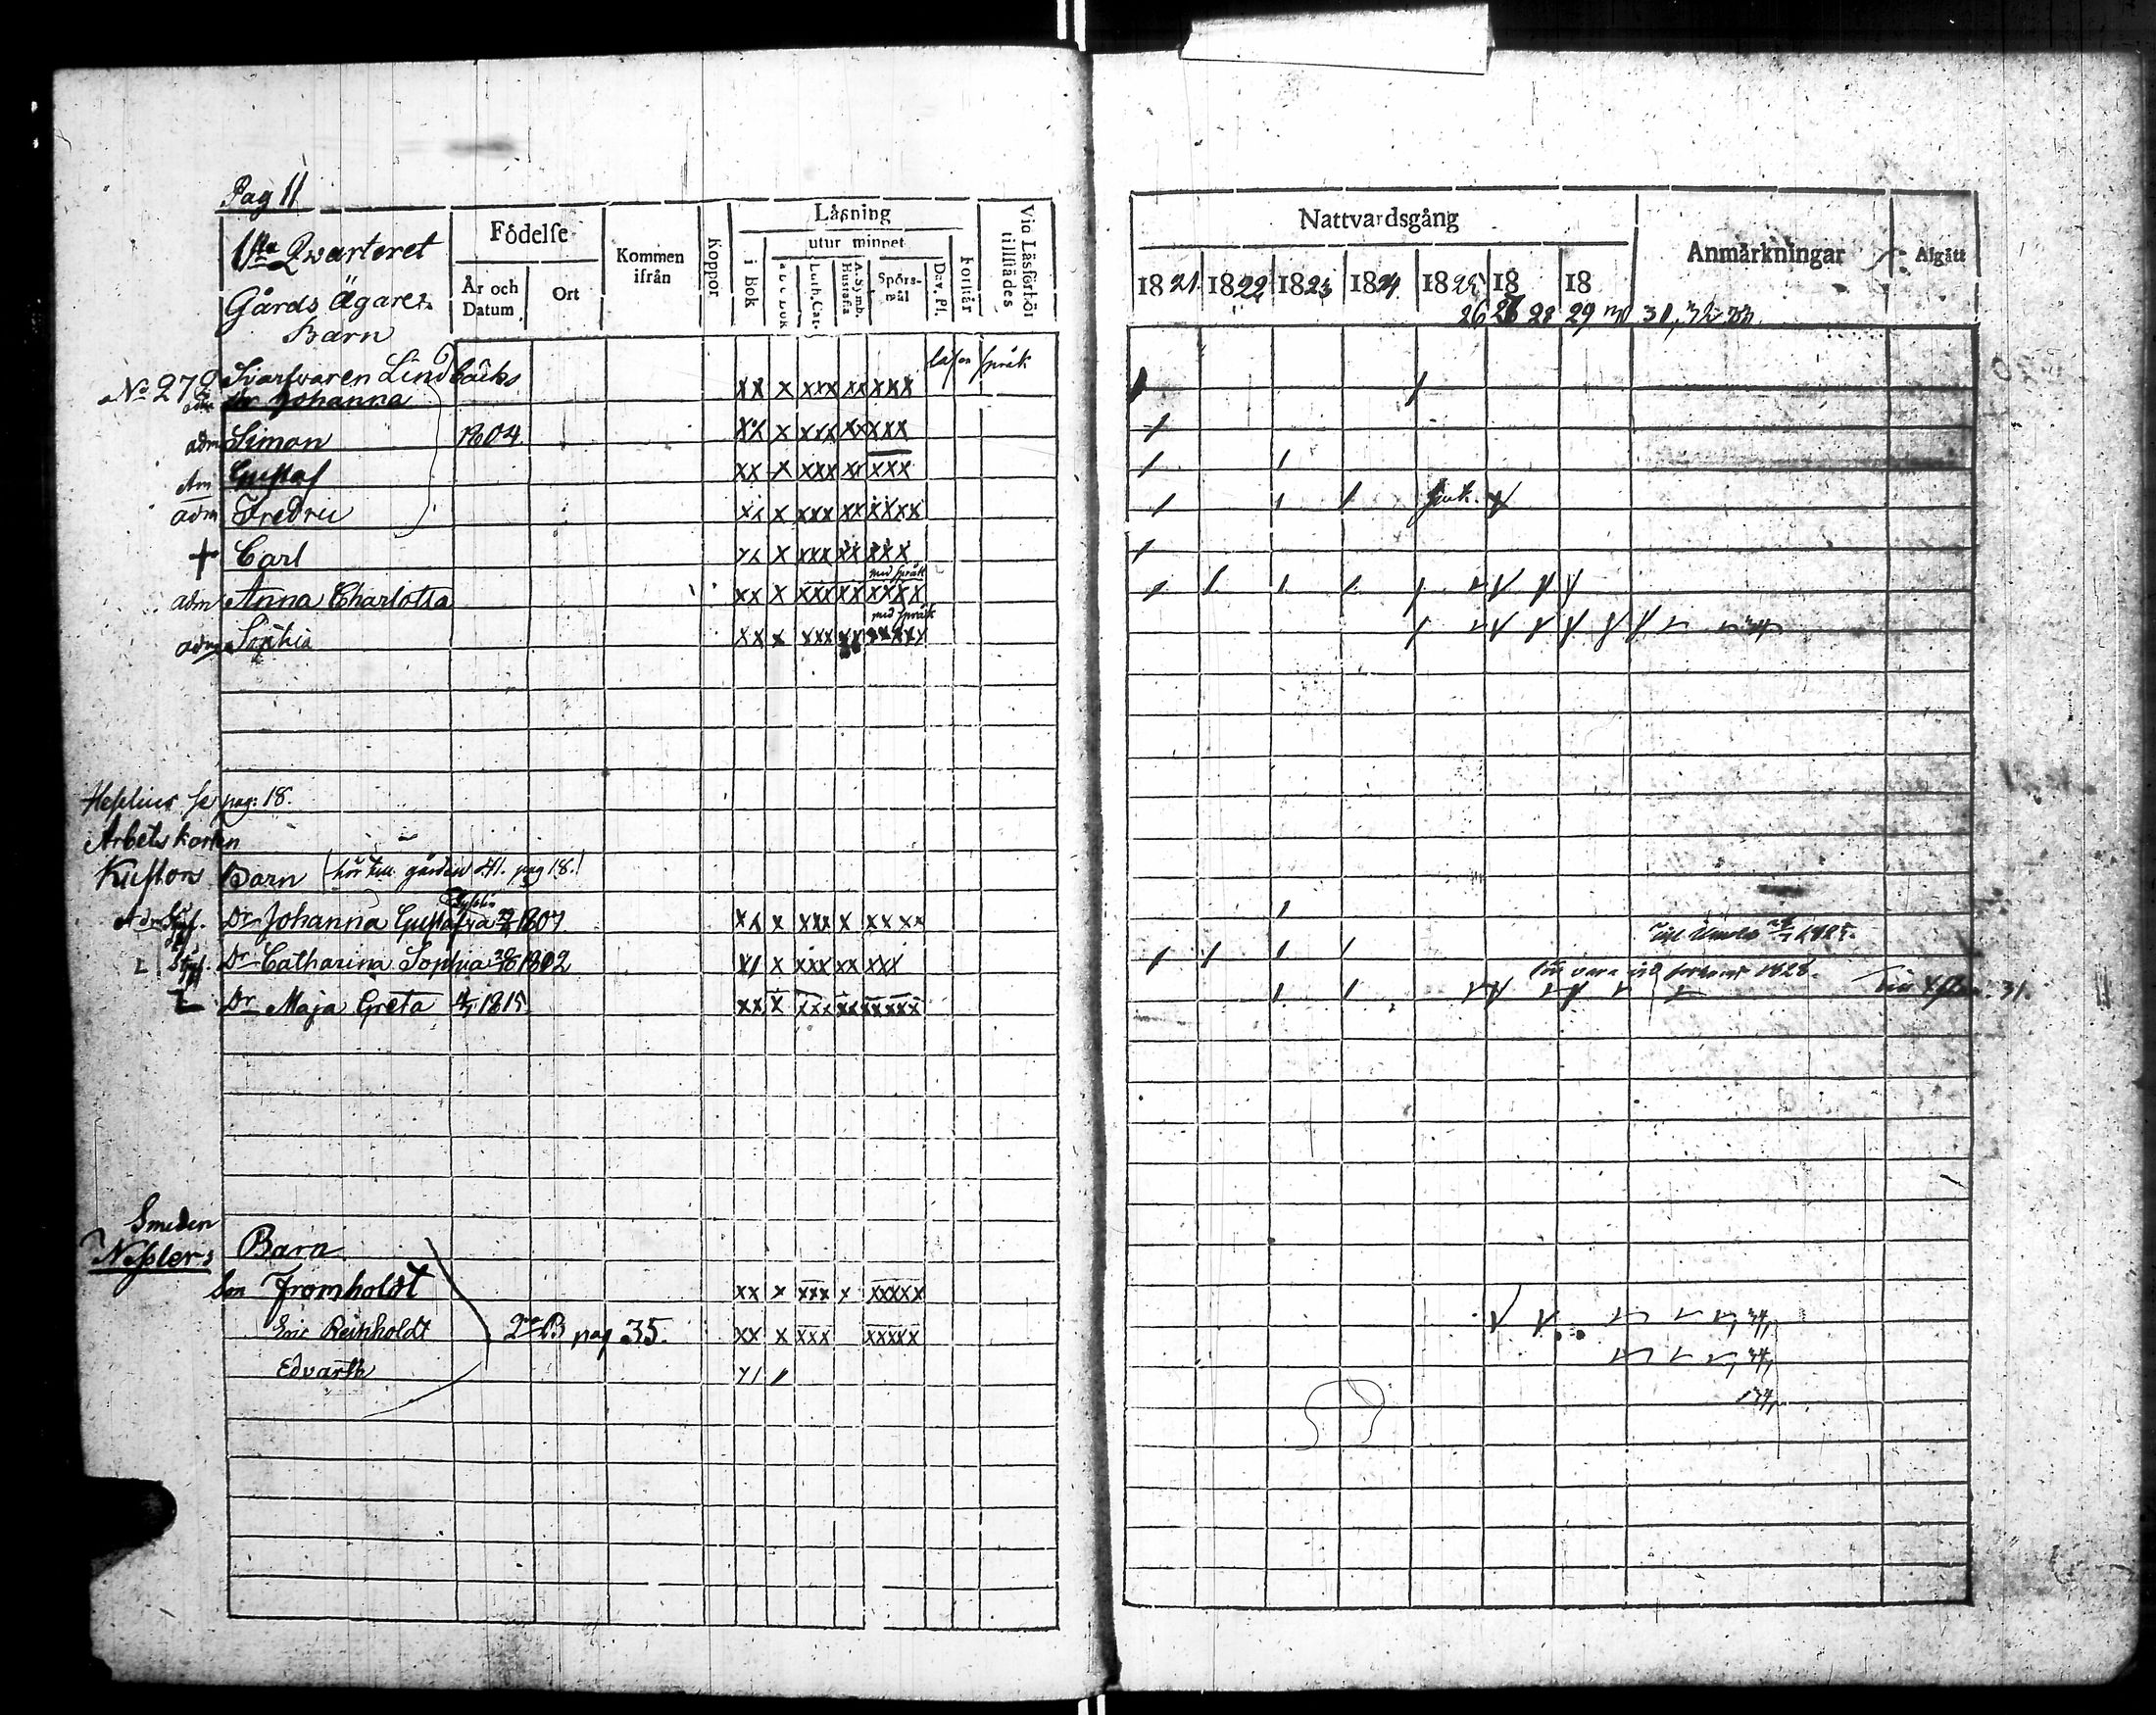 Pag 11
1sta Qwarteret
Gårds Ägares
Barn
Födelse
År och Datum
Ort
Kommen ifrån
Koppor
Låsning
i Bok
utur minnet
a b c Bok
Luth. Cat.
A. Symb. Hustafla
Spörs-mål
Dav. Pf.
Forstår
Vid Läsförhör tillstädes
Nattvardsgång
1821 1822 1823 1824 1825 18 18
26 27 28 29 30 31, 32 33
Anmärkningar
Afgått
Svarfvaren Lindbäcks
läser språk
No 27
adm Dr Johanna xx x xxx xx xxx
adm Simon 1804. xx x xxx xx xxx
Adm Gustaf xx x xxx xx xxx
adm Fredric xx x xxx xx xxxx
+ Carl xx x xxx xx xxx
med språk
adm Anna Charlotta xx x xxx xx xxxx
med språk
adm Sophia xx x xxx xx xxxxx
Hesslius se pag: 18.
Arbets karlen
Kustons Barn hör till gården 41. pag 18.
Adm Dr Johanna Gustafva 1807. xx x xxx x xxxx
Dr Catharina Sophia 1802 x/ x xxx xx xxx
1825.
1828.
Dr Maja Greta 1815. xx x xxx xx xxxxx
31.
Smeden
Nesslers Barn
Son Fromholdt xx x xxx x xxxxx
Eric Reinholdt 2dra B pag 35. xx x xxx xxxxx
Edvard